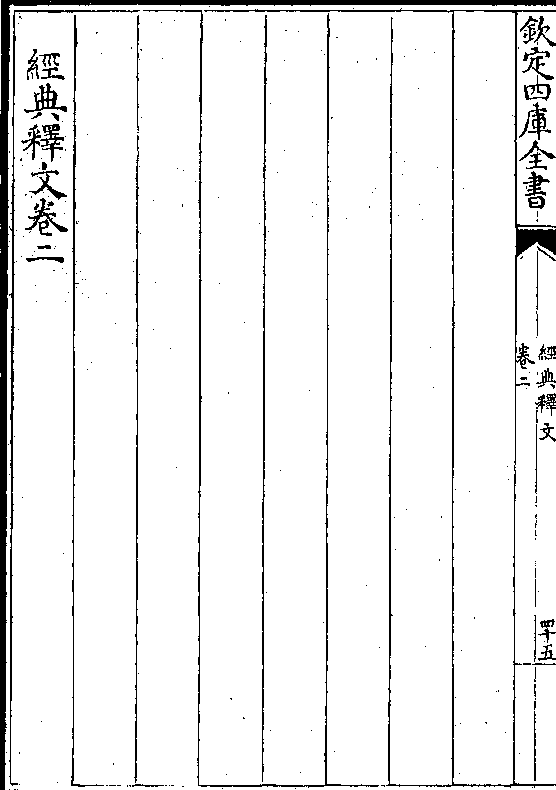 欽定四庫全書
經典釋文
卷二
四十五
經典釋文卷二